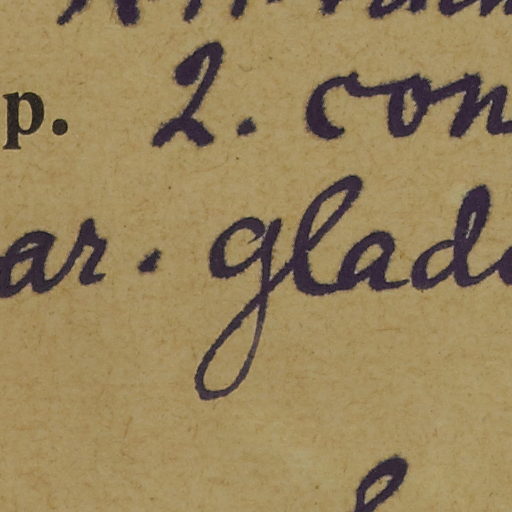 p. 2. con
ar. glad